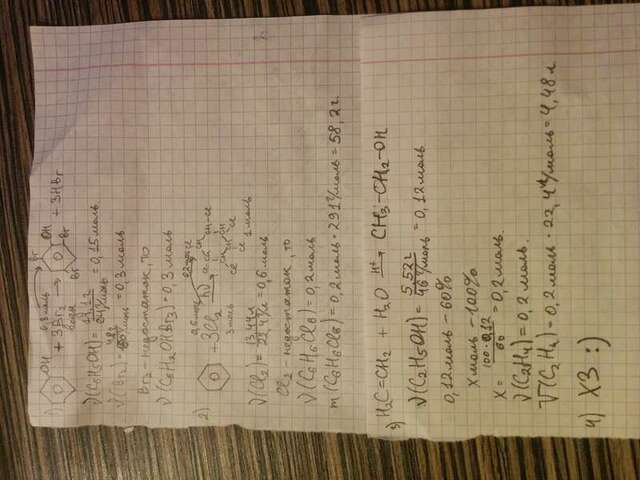 1) OH + 3Br2 → OH Br Br Br + 3HBr
0,3 моль
вода
ν(C6H5OH) = = 0,15 моль
ν(Br2) = = 0,3 моль
Br2 - недостаток, то
ν(C6H2OHBr3) = 0,3 моль
2) 3Cl2 hν →
3 моль 1 моль
ν(Cl2) = 13,44л / 22,4 л/моль = 0,6 моль
Cl2 - недостаток, то
ν(C6H6Cl6) = 0,2 моль
m(C6H6Cl6) = 0,2 моль · 291 г/моль = 58,2 г.
3) H2C=CH2 + H2O H+ → CH3-CH2-OH
ν(C2H5OH) = 5,52 г / 46 г/моль = 0,12 моль
0,12 моль - 60%
X моль - 100%
X = 100·0,12 / 60 = 0,2 моль
ν(C2H4) = 0,2 моль
V(C2H4) = 0,2 моль · 22,4 л/моль = 4,48 л
4) ХЗ :)